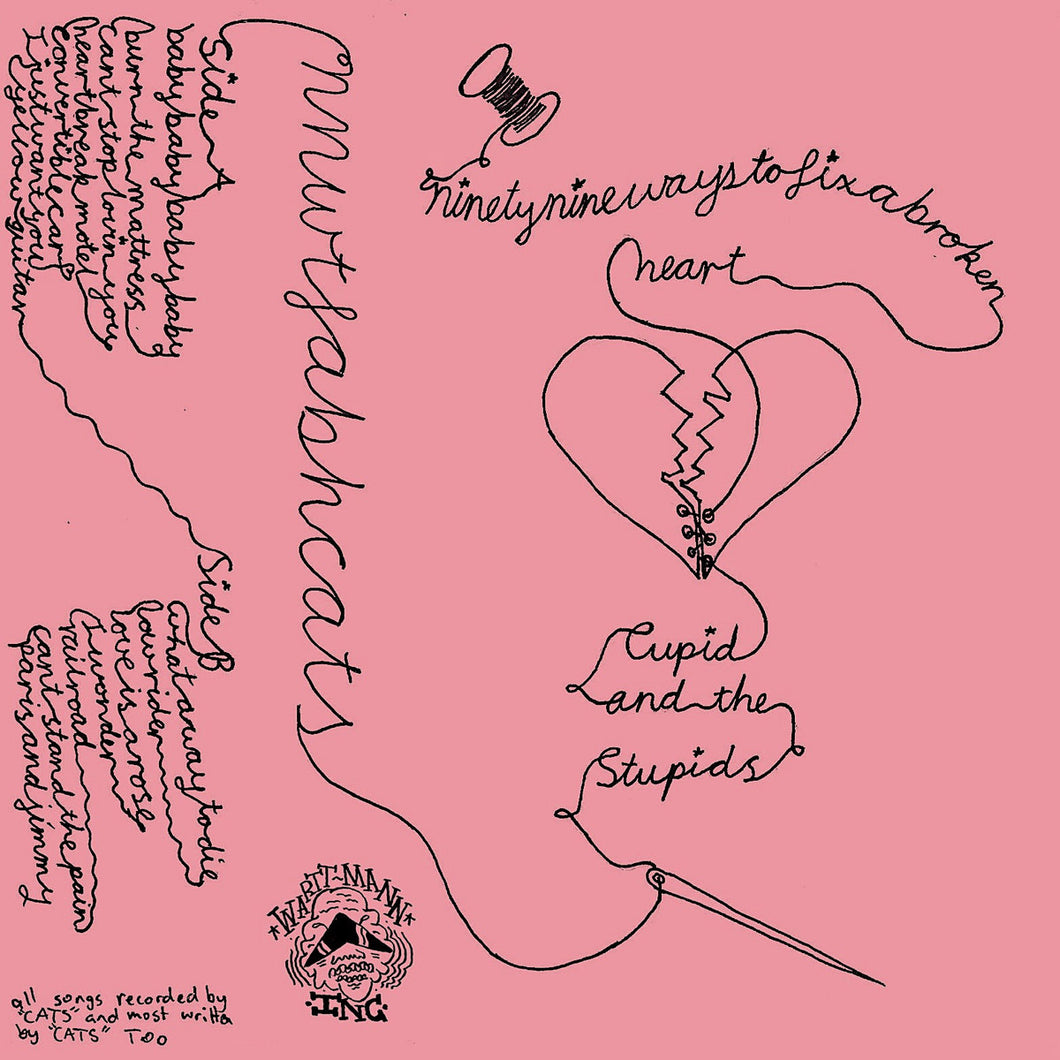 Side A
babybabybabybabybaby
burn the mattress
cant stop lovin you
heartbreak motel
convertible car
I just want you
yellow guitar
Side B
what a way to die
lowrider
love is a rose
I wonder
railroad
cant stand the pain
paris and jimmy
all songs recorded by
"CATS" and most writta
by "CATS" Too
nnwtfabhcats
*WARTT-MANN*
·INC·
ninetyninewaystofixabroken
heart
Cupid
and the
Stupids